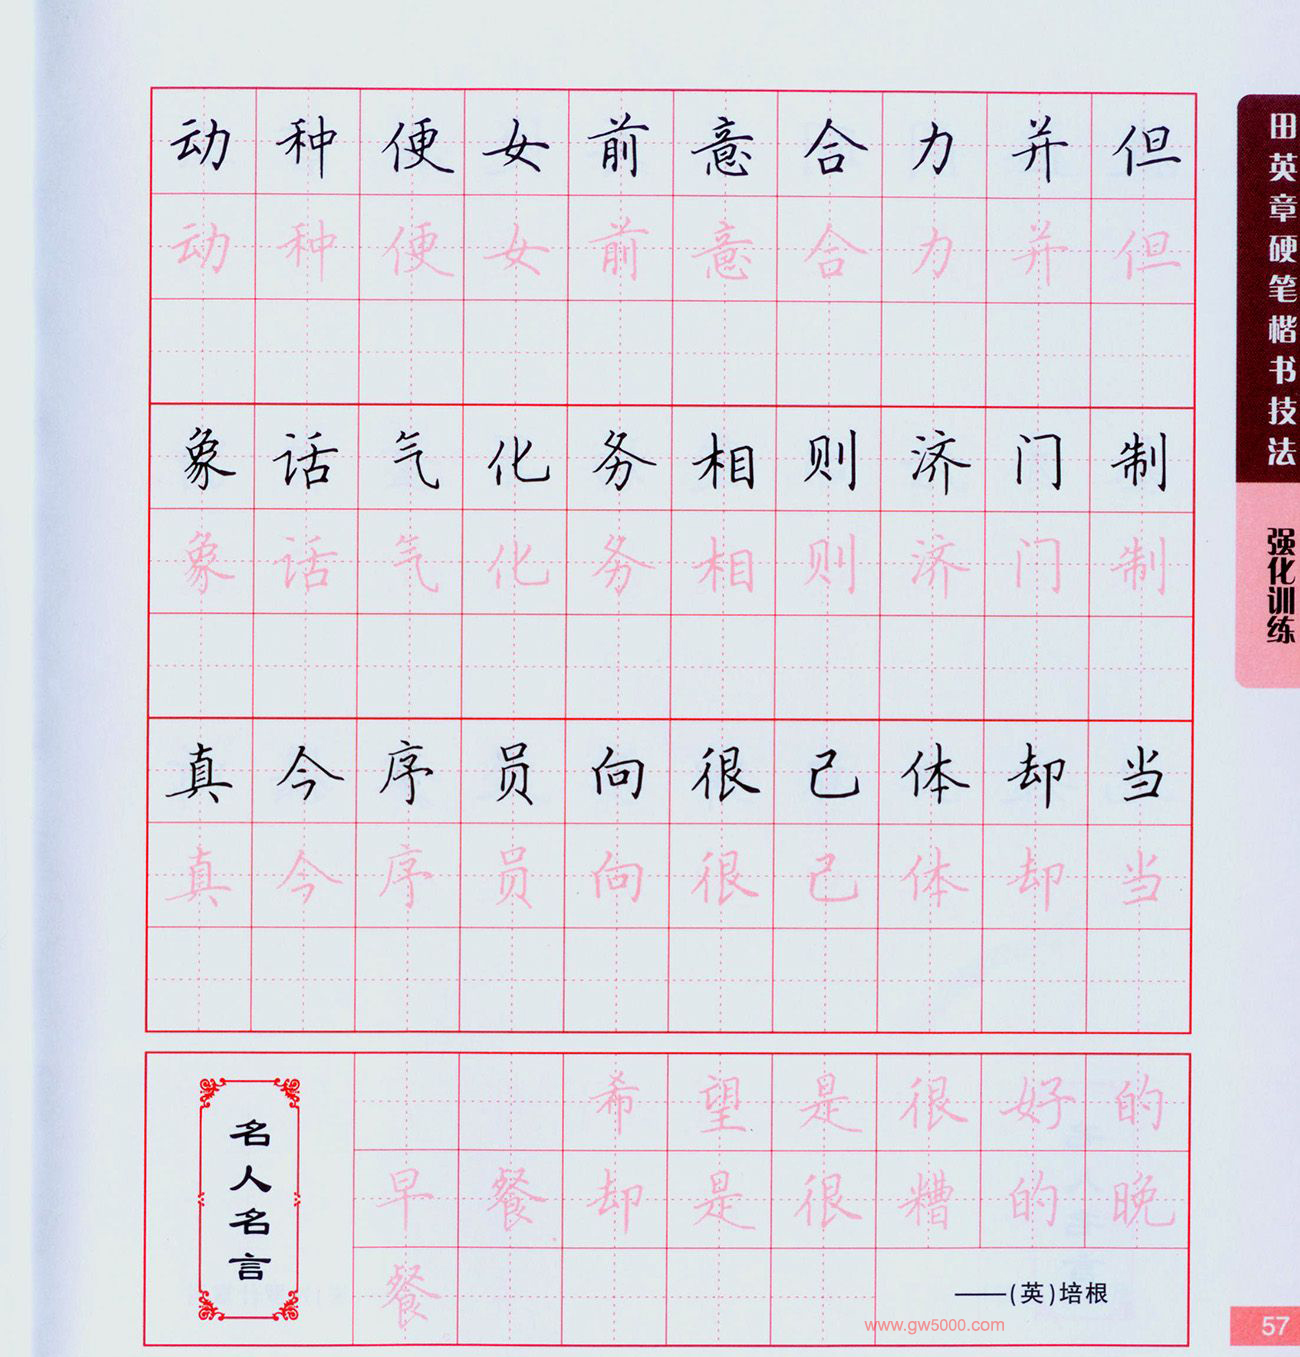 动种便女前意合力并但
动种便女前意合力并但
象话气化务相则济门制
象话气化务相则济门制
真今序员向很己体却当
真今序员向很己体却当
名人名言
希望是很好的
早餐却是很糟的晚
餐
——(英)培根
www.gw5000.com
田英章硬笔楷书技法
强化训练
57